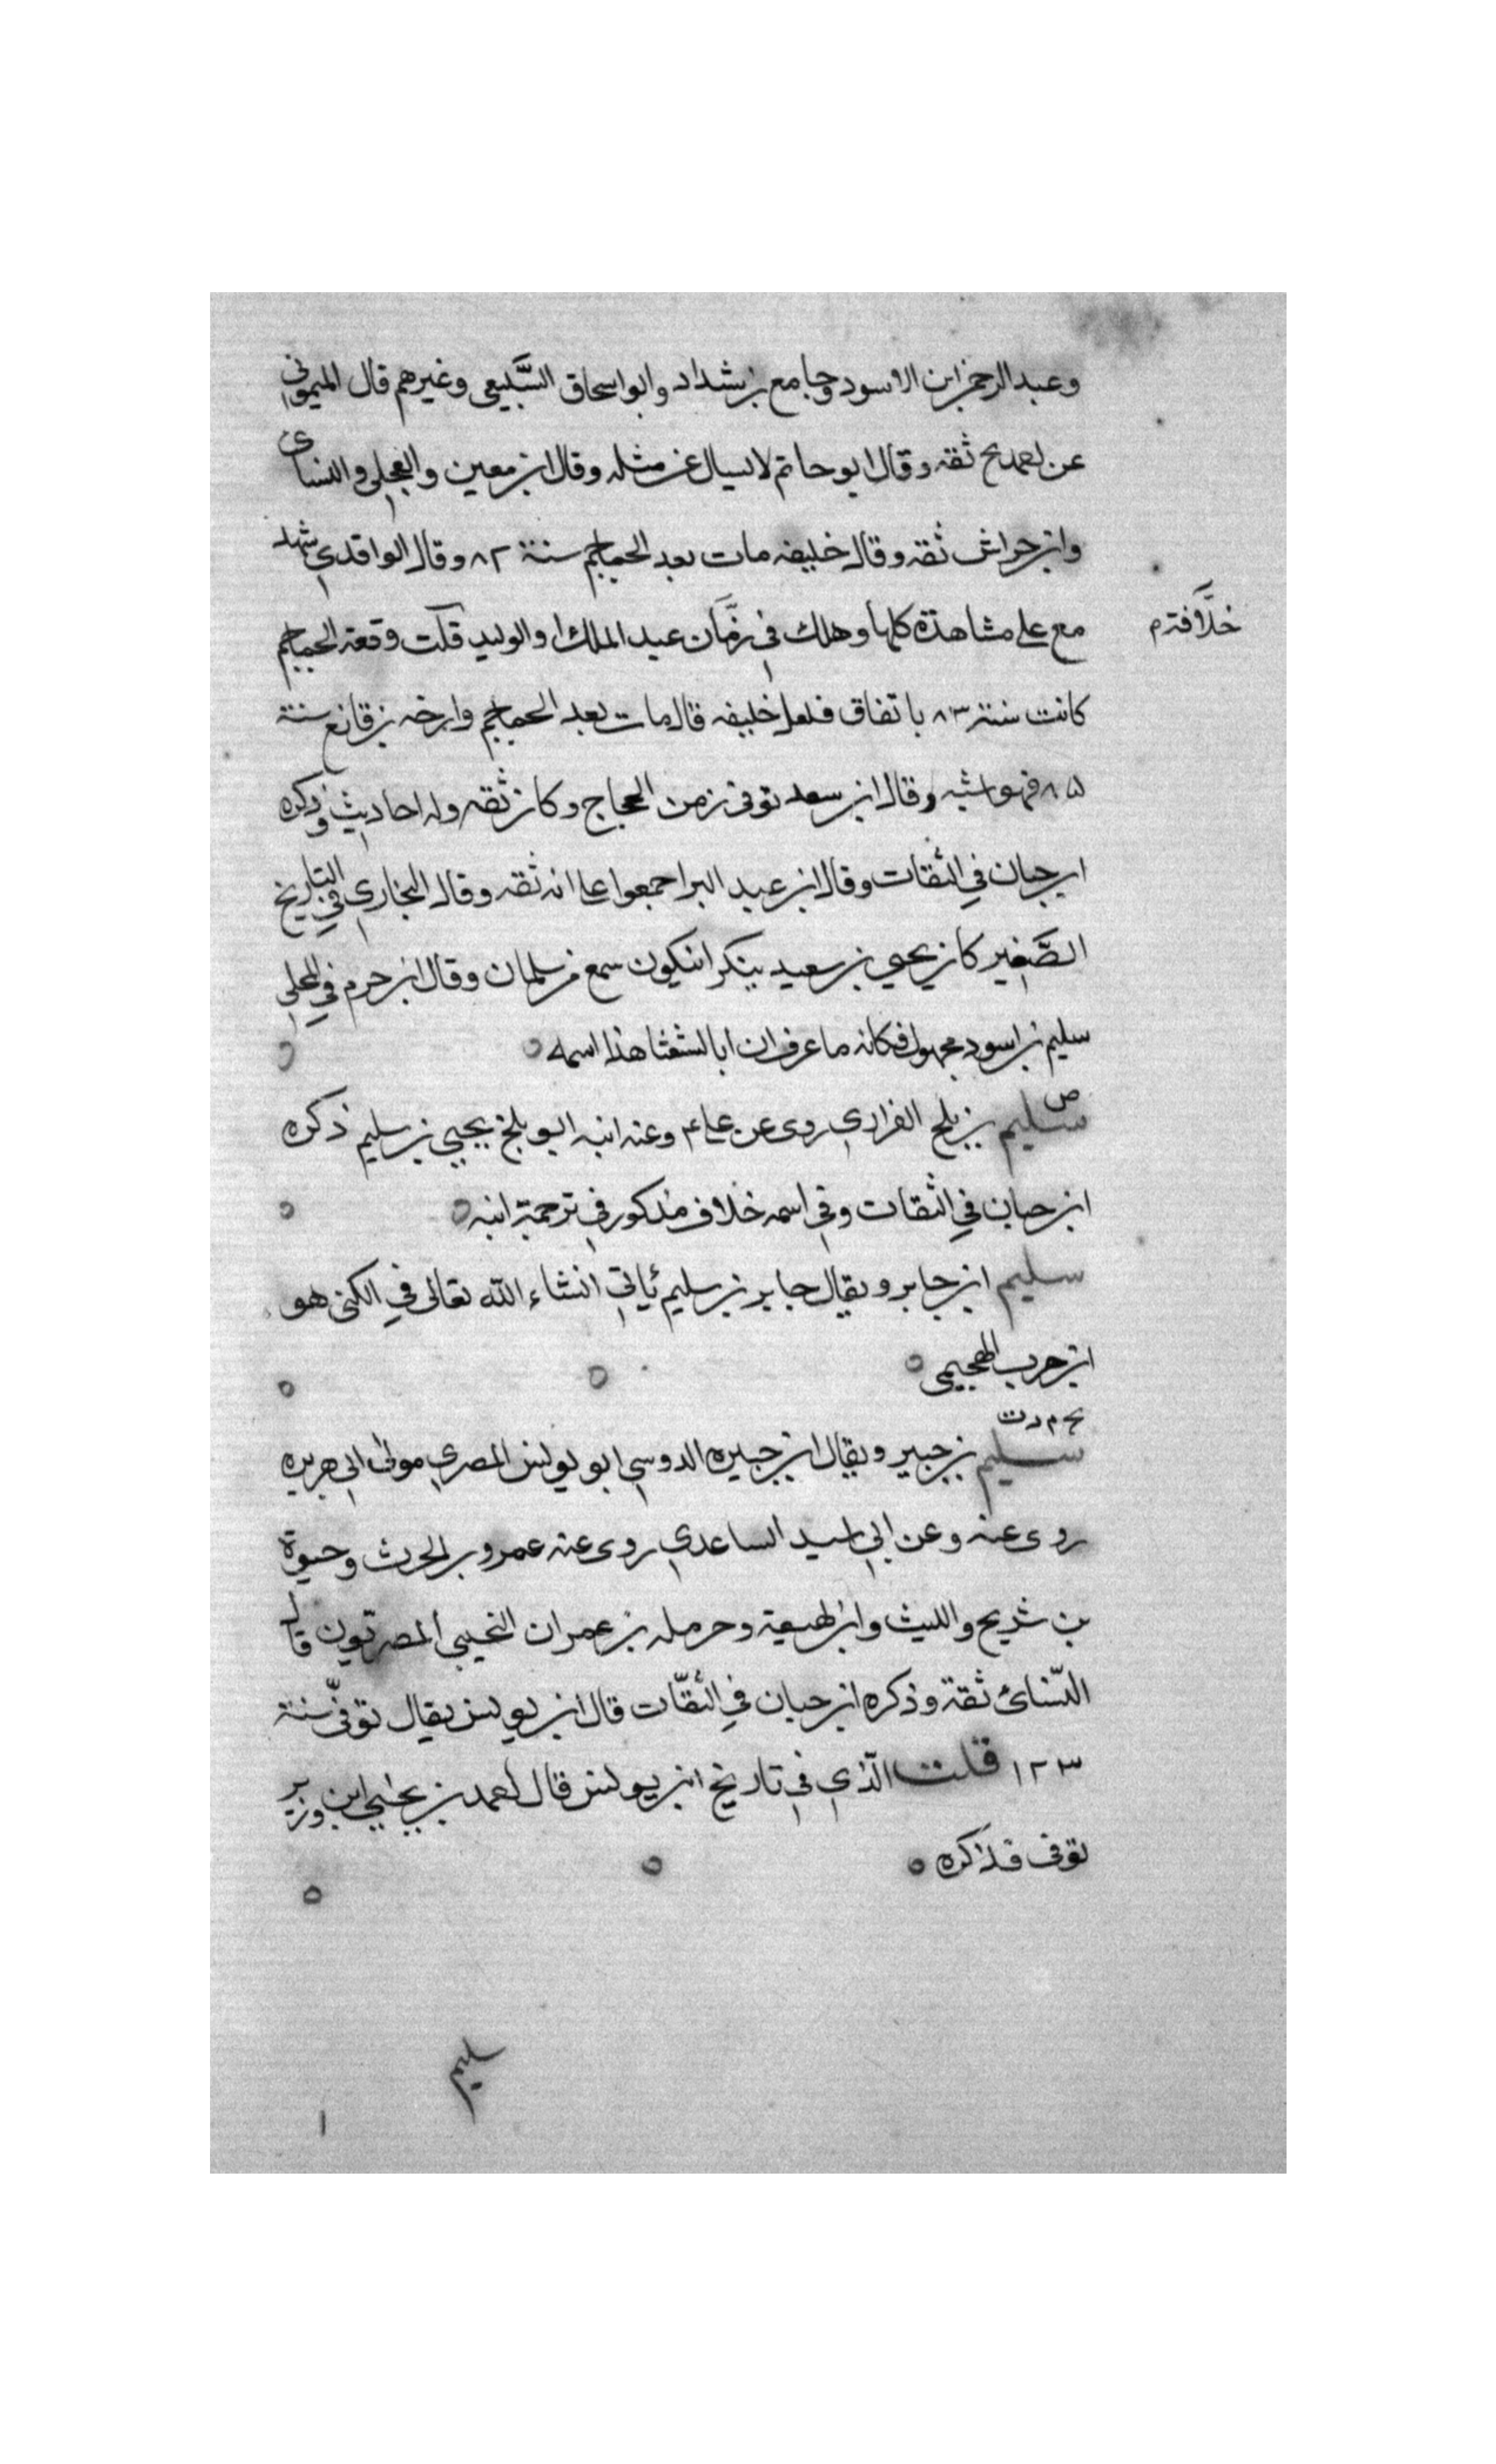 وعبد الرحمن ابن الاسود وجامع بن شداد وابو اسحاق السَّبيعي وغيرهم قال الميموني
عن احمد بخ ثقه وقال ابو حاتم لا يسال عن مثله وقال ابن معين والعجلي والنساى
وابن حراش ثقه وقال خليفه مات بعد الجماجم سنة ٨٢ وقال الواقدي شهد
مع علي مشاهدة كلها وهلك في زمَان عبد الملك او الوليد قلت وقعة الجماجم
خلَافة م
كانت سنة ٨٣ باتفاق فلعل خليفه قال مات بعد الجماجم وارخه بن قانع سنة
٨٥ فهو اشبه وقال ابن سعد توفى زمن الحجاج وكان ثقه وله احاديث وذكره
ابن حبان في الثقات وقال ابن عبد البر اجمعوا على انه ثقه وقال البخاري في التاريخ
الصَّغير كان يحيي بن سعيد ينكر ان يكون سمع من سلمان وقال ابن حزم في المحلي
سليم بن اسود مجهول فكانه ما عرف ان ابا الشعثا هذا اسمه
ص
سليم بن بلج الفزاري روى عن علي وعنه ابنه ابو بلج يحيي بن سليم ذكره
ابن حبان في الثقات وفي اسمه خلاف مذكور في ترجمة ابنه
سليم ابن جابر ويقال جابر بن سليم يأتي انشاء الله تعالى في الكنى هو
ابن جرب الهجيمى
بخ م د ت
سليم بن جبير ويقال ابن جبيره الدوسي ابو يونس المصري مولى ابي هريره
روى عنه وعن ابي اسيد الساعدي روى عنه عمرو بن الحرث وحيوة
بن شريح والليث وابن لهيعة وحرمله بن عمران التجيبي المصريّون قال
النّسائ ثقة وذكره ابن حبان في الثقّات قال ابن يونس يقال توفّي سنة
١٢٣ قلت الّذي في تاريخ ابن يونس قال احمد بن يحيي ابن وزير
توفى فذكره
سليم
١